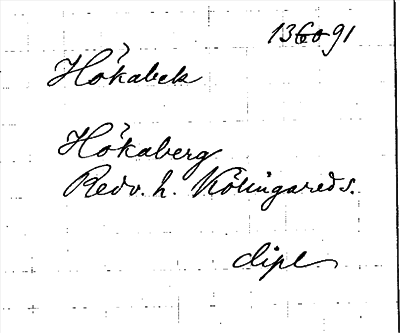 136091
Hökabek
Hökaberg
Redv. h. Kölingareds.
dipl